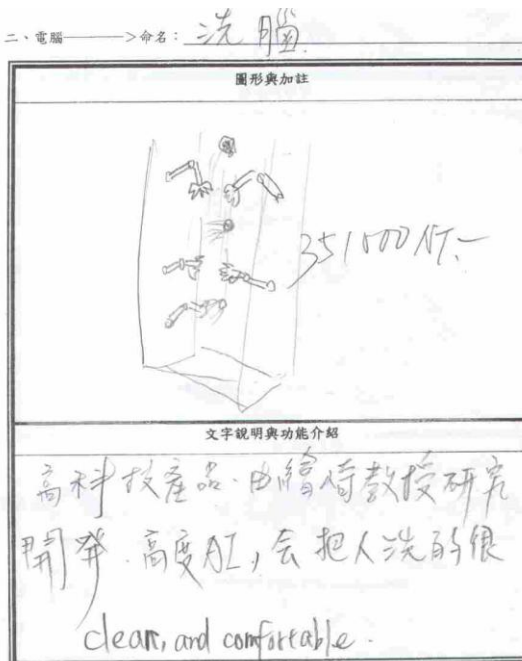 二、電腦————>命名：洗腦
圖形與加註
351000 NT.-
文字說明與功能介紹
高科技產品.由繪倚教授研究
開發.高度AI,会把人洗的很
clean, and comfortable.